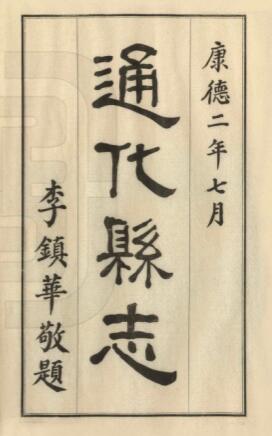 康德二年七月
通化縣志
李鎮華敬題